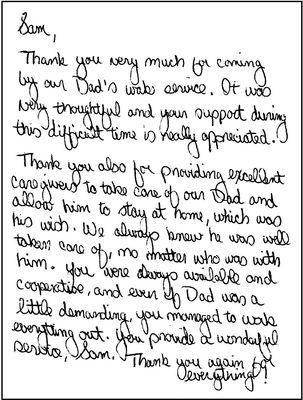 Sam,
Thank you very much for coming
by our Dad's wake service. It was
very thoughtful and your support during
this difficult time is really appreciated.
Thank you also for providing excellent
caregivers to take care of our Dad and
allow him to stay at home, which was
his wish. We always knew he was well
taken care of, no matter who was with
him. You were always available and
cooperative, and even if Dad was a
little demanding, you managed to work
everything out. You provide a wonderful
service, Sam. Thank you again for
everything!